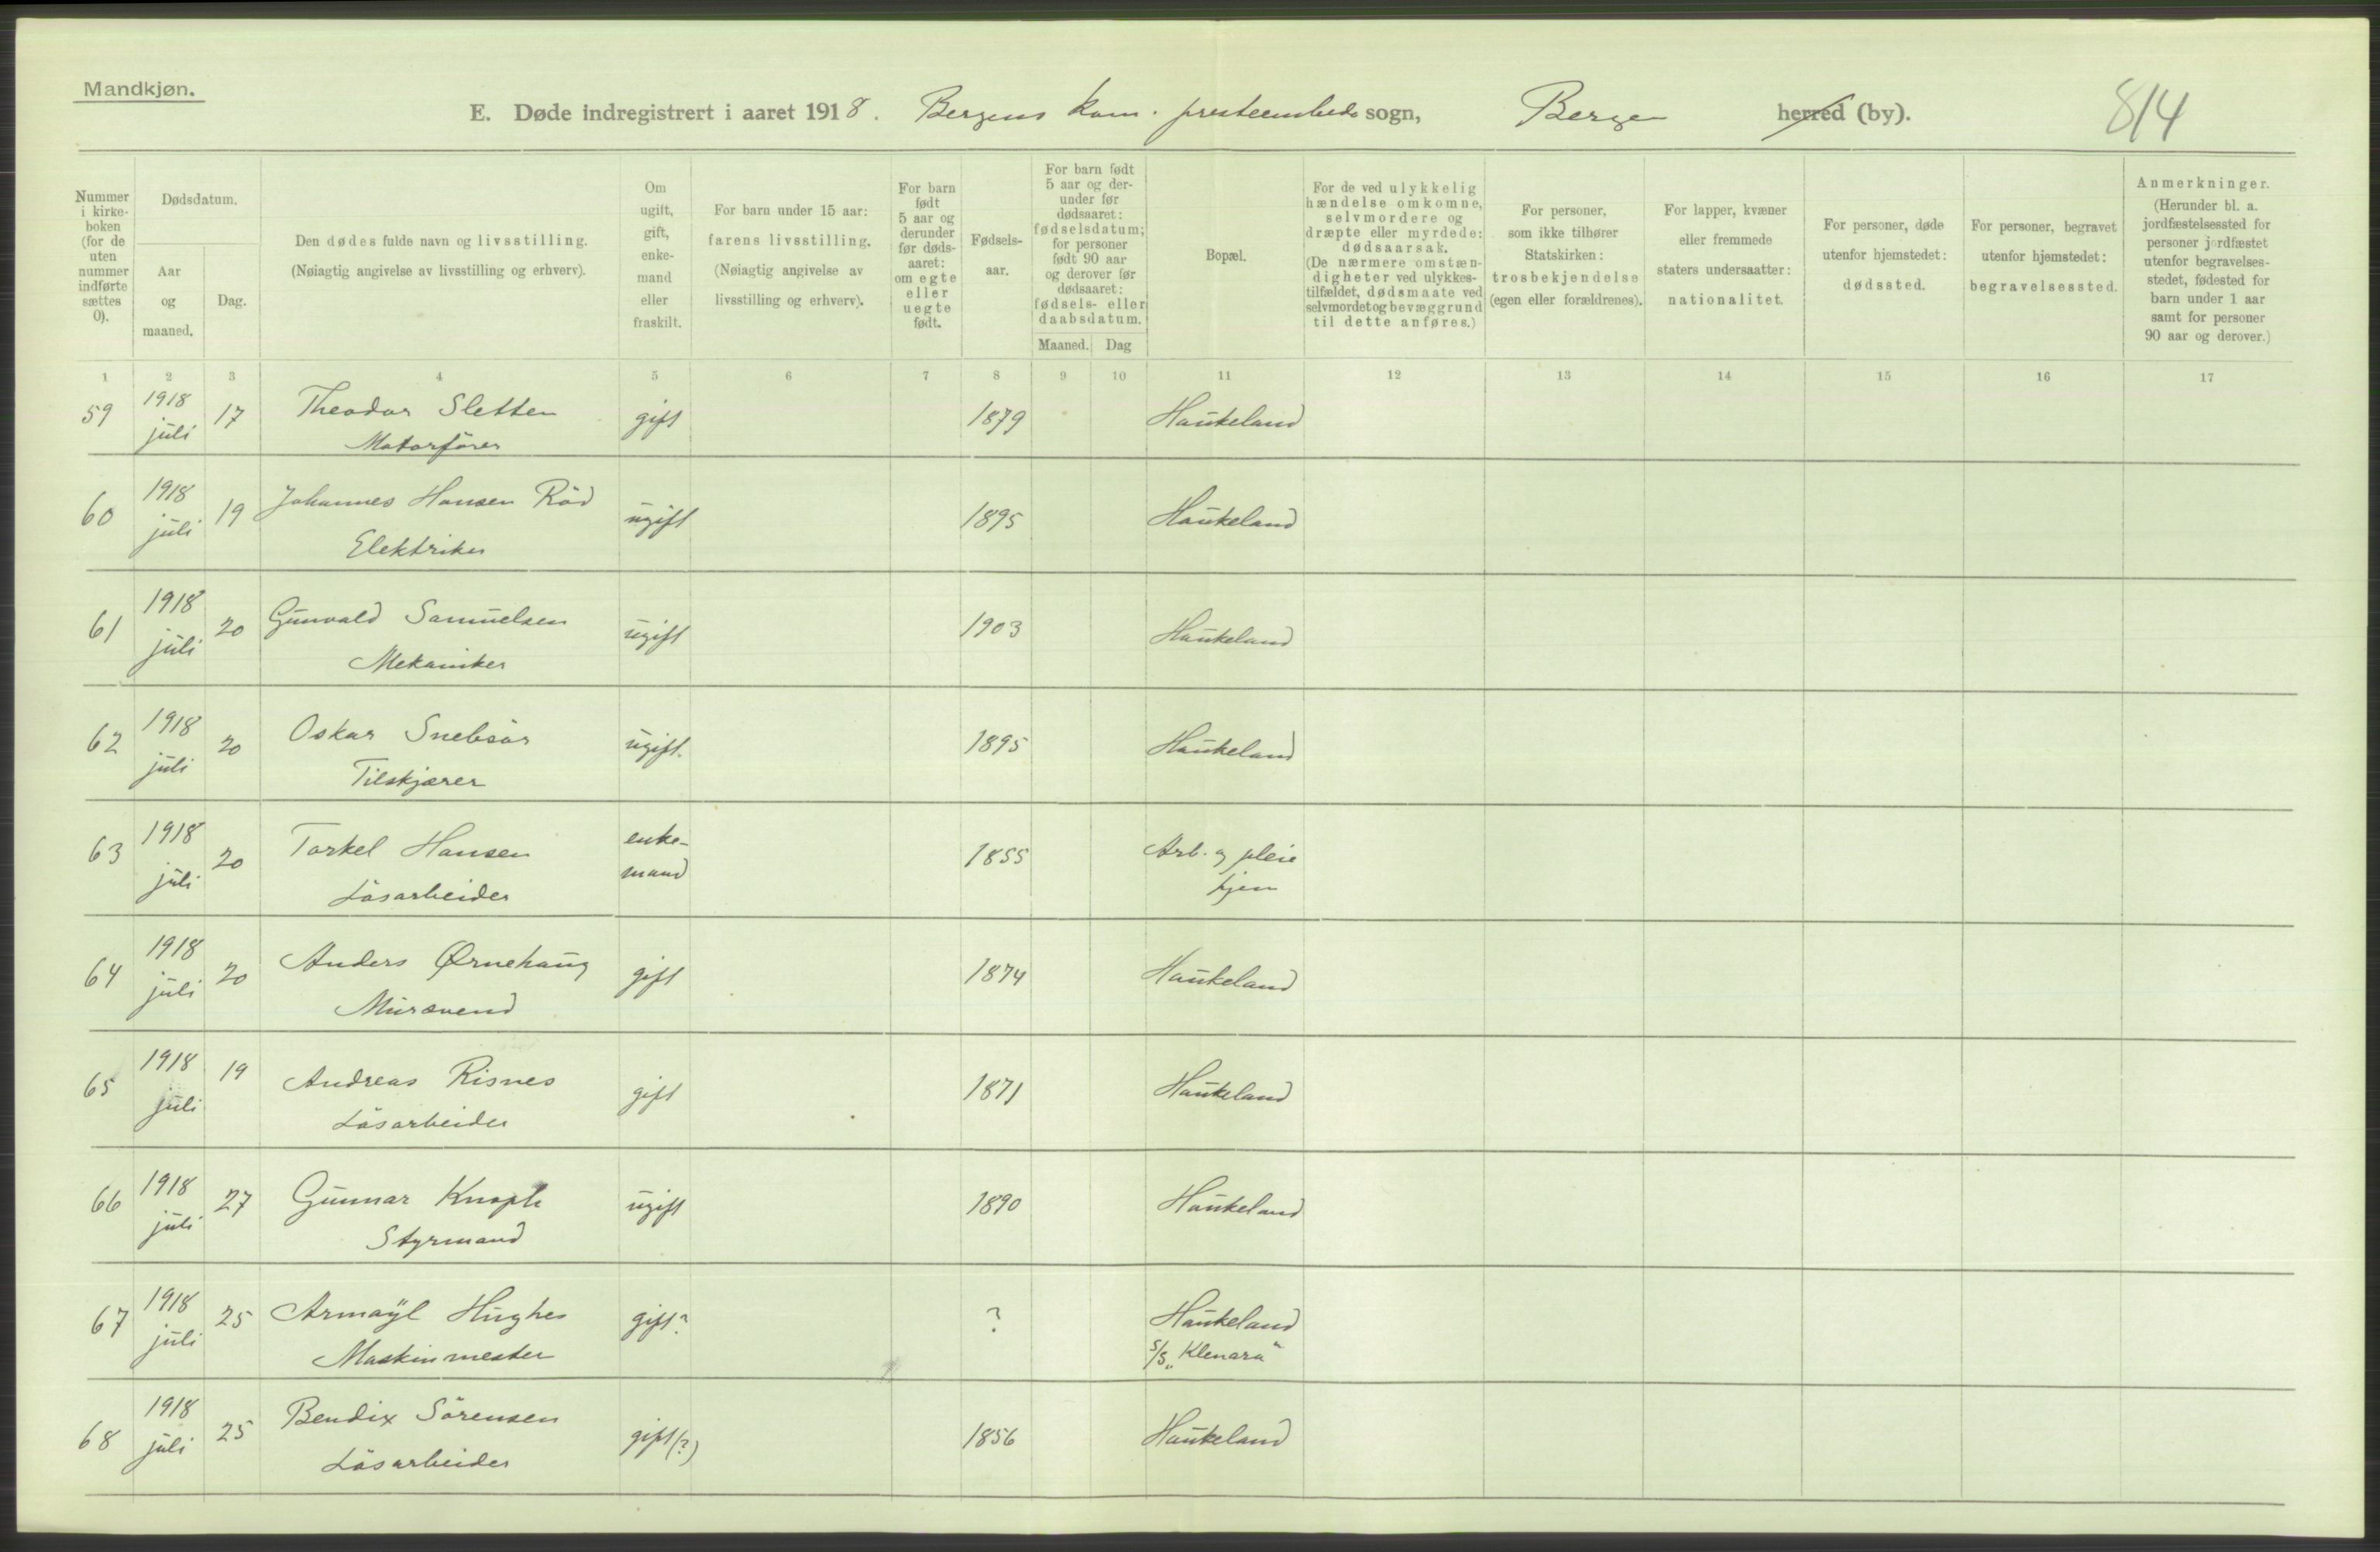 Mandkjøn.
E. Døde indregistrert i aaret 1918. Bergens kom. presteembede sogn, Bergen herred (by). 814
Nummer i kirkeboken (for de uten nummer indførte sættes 0).
Dødsdatum.
Aar og maaned.
Dag.
Den dødes fulde navn og livsstilling.
(Nøiagtig angivelse av livsstilling og erhverv).
Om ugift, gift, enkemand eller fraskilt.
For barn under 15 aar: farens livsstilling. (Nøiagtig angivelse av livsstilling og erhverv).
For barn født 5 aar og derunder før dødsaaret: om egte eller uegte født.
Fødselsaar.
For barn født 5 aar og derunder før dødsaaret: fødselsdatum; for personer født 90 aar og derover før dødsaaret: fødsels- eller daabsdatum.
Maaned. Dag
Bopæl.
For de ved ulykkelig hændelse omkomne, selvmordere og dræpte eller myrdede: dødsaarsak. (De nærmere omstændigheter ved ulykkestilfældet, dødsmaate ved selvmordet og bevæggrund til dette anføres.)
For personer, som ikke tilhører Statskirken: trosbekjendelse (egen eller forældrenes).
For lapper, kvæner eller fremmede staters undersaatter: nationalitet.
For personer, døde utenfor hjemstedet: dødssted.
For personer, begravet utenfor hjemstedet: begravelsessted.
Anmerkninger. (Herunder bl. a. jordfæstelsessted for personer jordfæstet utenfor begravelsesstedet, fødested for barn under 1 aar samt for personer 90 aar og derover.)
1 2 3 4 5 6 7 8 9 10 11 12 13 14 15 16 17
59 1918 juli 17 Theodor Sletten gift 1879 Haukeland
Motorfører
60 1918 juli 19 Johannes Hansen Röd ugift 1895 Haukeland
Elektriker
61 1918 juli 20 Gunvald Samuelsen ugift 1903 Haukeland
Mekaniker
62 1918 juli 20 Oskar Snebsör ugift. 1895 Haukeland
Tilskjærer
63 1918 juli 20 Torkel Hansen enkemand 1855 Arb. og pleie hjem
Lösarbeider
64 1918 juli 20 Anders Ørnehaug gift 1874 Haukeland
Mursvend
65 1918 juli 19 Andreas Risnes gift 1871 Haukeland
Lösarbeider
66 1918 juli 27 Gunnar Knoph ugift 1890 Haukeland
Styrmand
67 1918 juli 25 Armayl Hughes gift? ? Haukeland
Maskinmester S/S „Klenara"
68 1918 juli 25 Bendix Sörensen gift(?) 1856 Haukeland
Lösarbeider